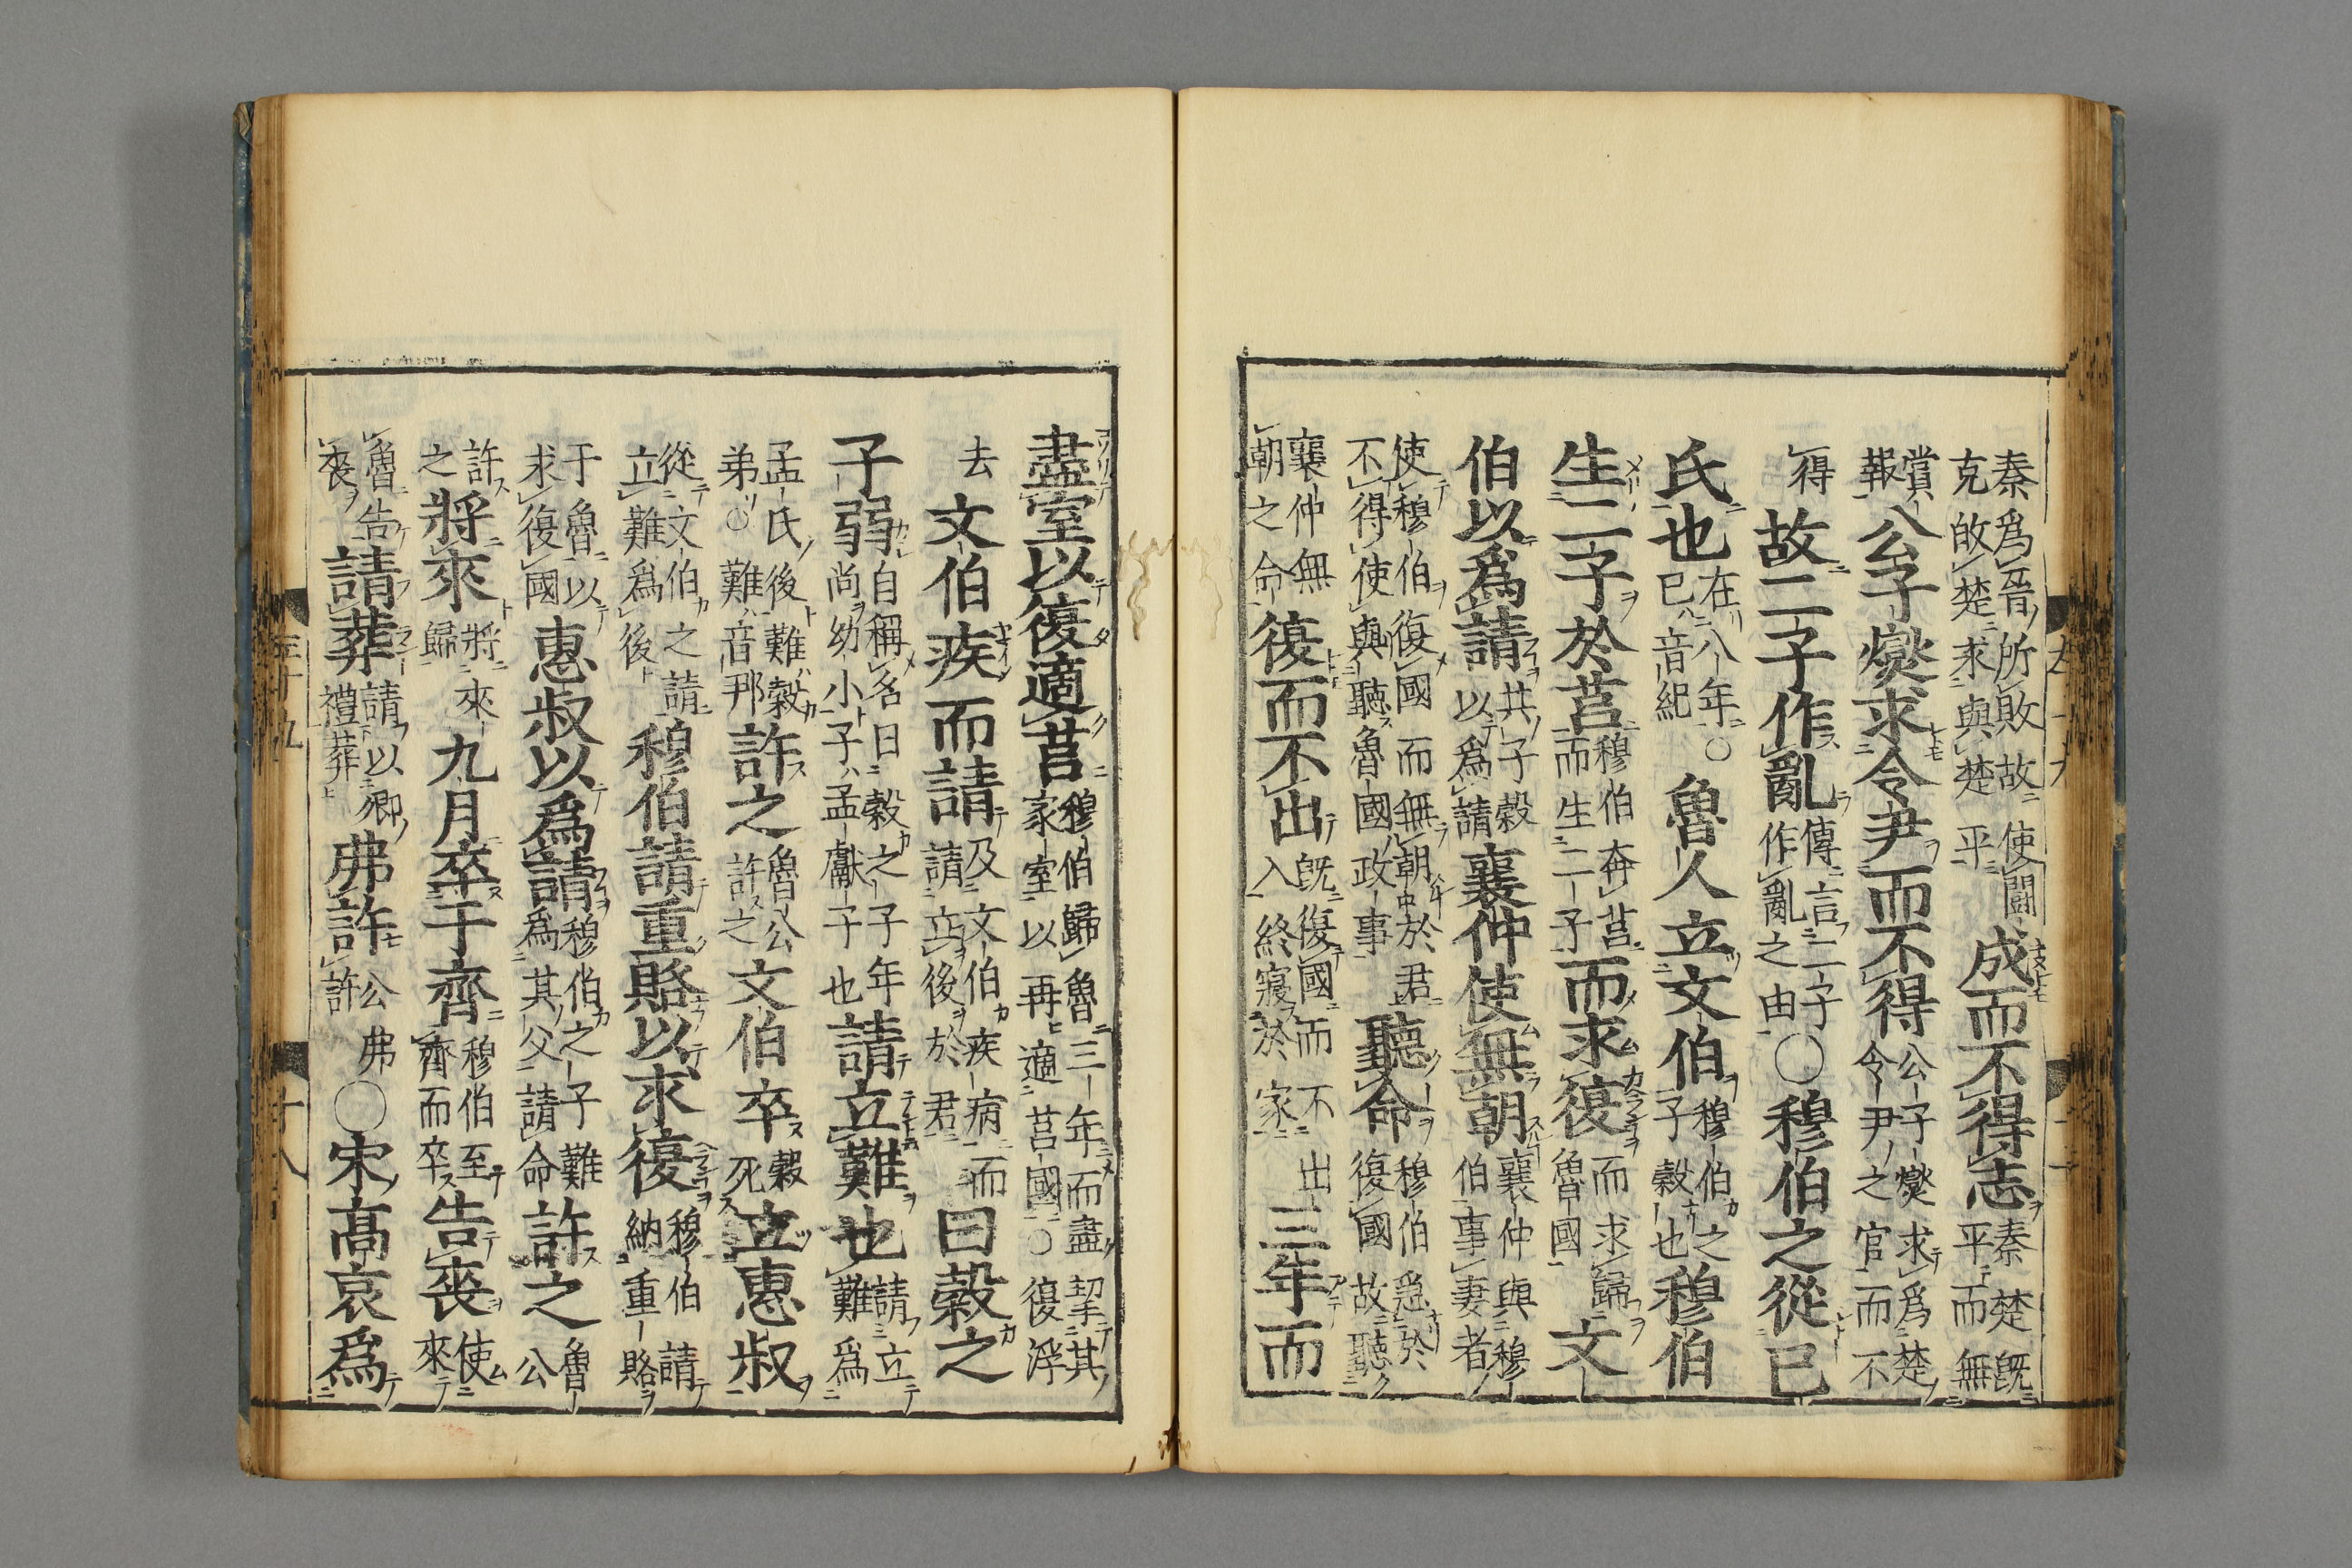 秦爲晉所敗故使鬭克敗楚求與楚平成而不得志秦楚既平而無
賞報公子燮求令尹而不得公子燮求爲楚令尹之官而不
得故二子作亂傳言二子作亂之由○穆伯之從己
氏也在八年○己音紀魯人立文伯穆伯之子穀也穆伯
生二子於莒穆伯奔莒而生二子而求復而求歸魯國文
伯以爲請其子穀以爲請襄仲使無朝襄仲與穆伯事妻者
使穆伯復國而無朝於君不得使與聽魯國政事聽命穆伯急於復國故聽
襄仲無朝之命復而不出既復國而不出入終寢於家三年而
盡室以復適莒穆伯歸魯三年而盡挈其家室以再適莒國○復浮
去文伯疾而請及文伯疾病而請立後於君曰穀之
子弱自稱名曰穀之子年尚幼小子孟獻子也請立難也請立難爲
孟氏後難穀弟○難音那許之魯公許之文伯卒穀死立惠叔
從文伯之請立難爲後穆伯請重賂以求復穆伯請納重賂
于魯以求復國惠叔以爲請穆伯之子難爲其父請命許之魯公
許之將來將來歸九月卒于齊穆伯至齊而卒告喪使來
魯告喪請葬請以卿禮葬弗許公弗許○宋高哀爲